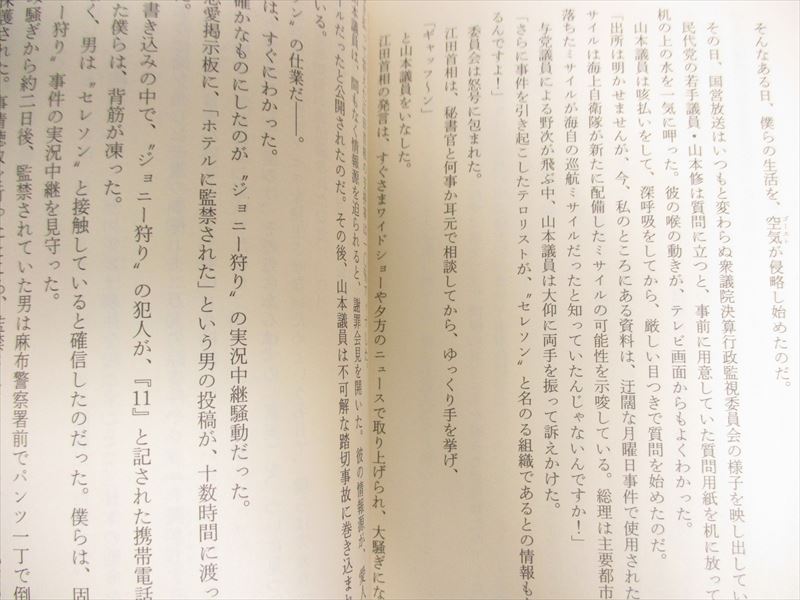 そんなある日、僕らの生活を、空気が侵略し始めたのだ。
その日、国営放送はいつもと変わらぬ衆議院決算行政監視委員会の様子を映し出してい
民代党の若手議員・山本修は質問に立つと、事前に用意していた質問用紙を机に放って
机の上の水を一気に呷った。彼の喉の動きが、テレビ画面からもよくわかった。
山本議員は咳払いをして、深呼吸をしてから、厳しい目つきで質問を始めたのだ。
「出所は明かせませんが、今、私のところにある資料は、迂闊な月曜日事件で使用された
サイルは海上自衛隊が新たに配備したミサイルの可能性を示唆している。総理は主要都市
落ちたミサイルが海自の巡航ミサイルだったと知っていたんじゃないんですか！」
与党議員による野次が飛ぶ中、山本議員は大仰に両手を振って訴えかけた。
「さらに事件を引き起こしたテロリストが、〝セレソン〟と名のる組織であるとの情報も
るんですよ！」
委員会は怒号に包まれた。
江田首相は、秘書官と何事か耳元で相談してから、ゆっくり手を挙げ、
「ギャッフ〜ン」
と山本議員をいなした。
江田首相の発言は、すぐさまワイドショーや夕方のニュースで取り上げられ、大騒ぎにな
本議員は、間もなく情報源を迫られると、謝罪会見を開いた。彼の情報源が、愛人
ールだったと公開されたのだ。その後、山本議員は不可解な踏切事故に巻き込まれ
いる。
ソン〟の仕業だ――。
は、すぐにわかった。
確かなものにしたのが〝ジョニー狩り〟の実況中継騒動だった。
恋愛掲示板に、「ホテルに監禁された」という男の投稿が、十数時間に渡っ
書き込みの中で、〝ジョニー狩り〟の犯人が、『11』と記された携帯電話
た僕らは、背筋が凍った。
く、男は〝セレソン〟と接触していると確信したのだった。僕らは、固
ー狩り〟事件の実況中継を見守った。
騒ぎから約二日後、監禁されていた男は麻布警察署前でパンツ一丁で倒